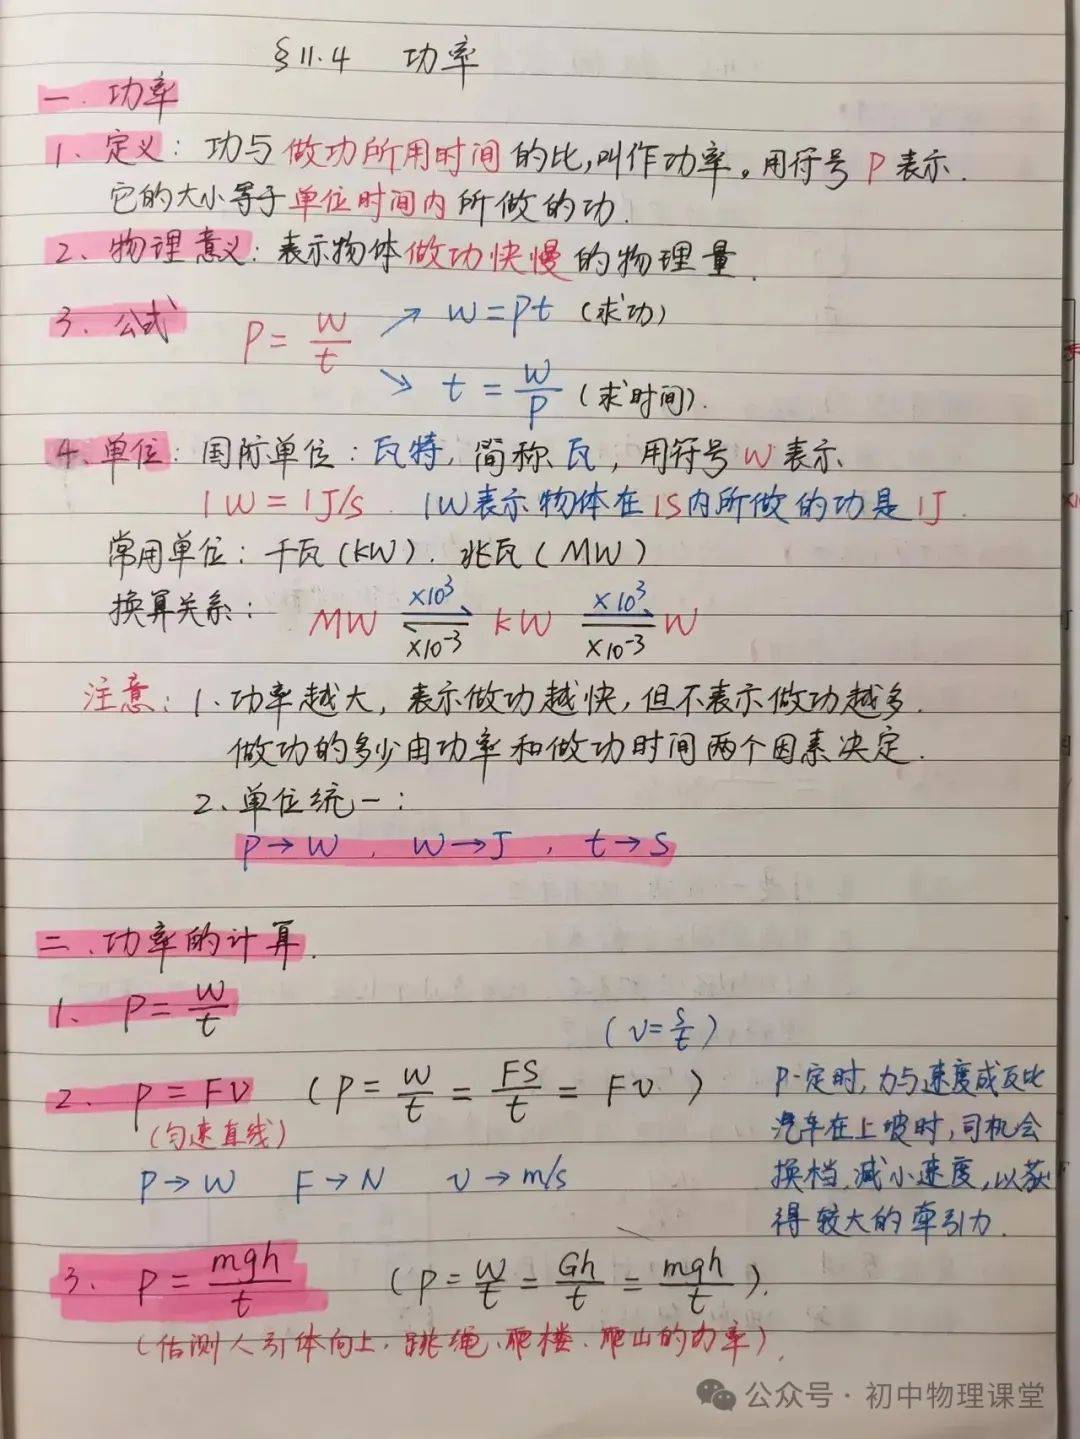 §11.4 功率
一.功率
1、定义：功与做功所用时间的比,叫作功率。用符号P表示.
它的大小等于单位时间内所做的功.
2、物理意义：表示物体做功快慢的物理量.
3、公式 P=W/t ↗ W=Pt (求功)
↘ t=W/P (求时间).
4、单位：国际单位：瓦特，简称瓦，用符号W表示、
1W=1J/s . 1W表示物体在1S内所做的功是1J.
常用单位：千瓦(kW). 兆瓦(MW)
换算关系： MW ×10³ ⇌ ×10⁻³ kW ×10³ ⇌ ×10⁻³ W
注意：1、功率越大，表示做功越快,但不表示做功越多.
做功的多少由功率和做功时间两个因素决定.
2、单位统一：
P→W , W→J , t→S
二.功率的计算.
1. P=W/t
(v=s/t)
2. P=Fv (P=W/t=FS/t=Fv)
(匀速直线)
P→W F→N v→m/s
P一定时,力与速度成反比
汽车在上坡时,司机会
换档,减小速度,以获
得较大的牵引力.
3. P=mgh/t (P=W/t=Gh/t=mgh/t).
(估测人引体向上、跳绳、爬楼、爬山的功率).
公众号·初中物理课堂